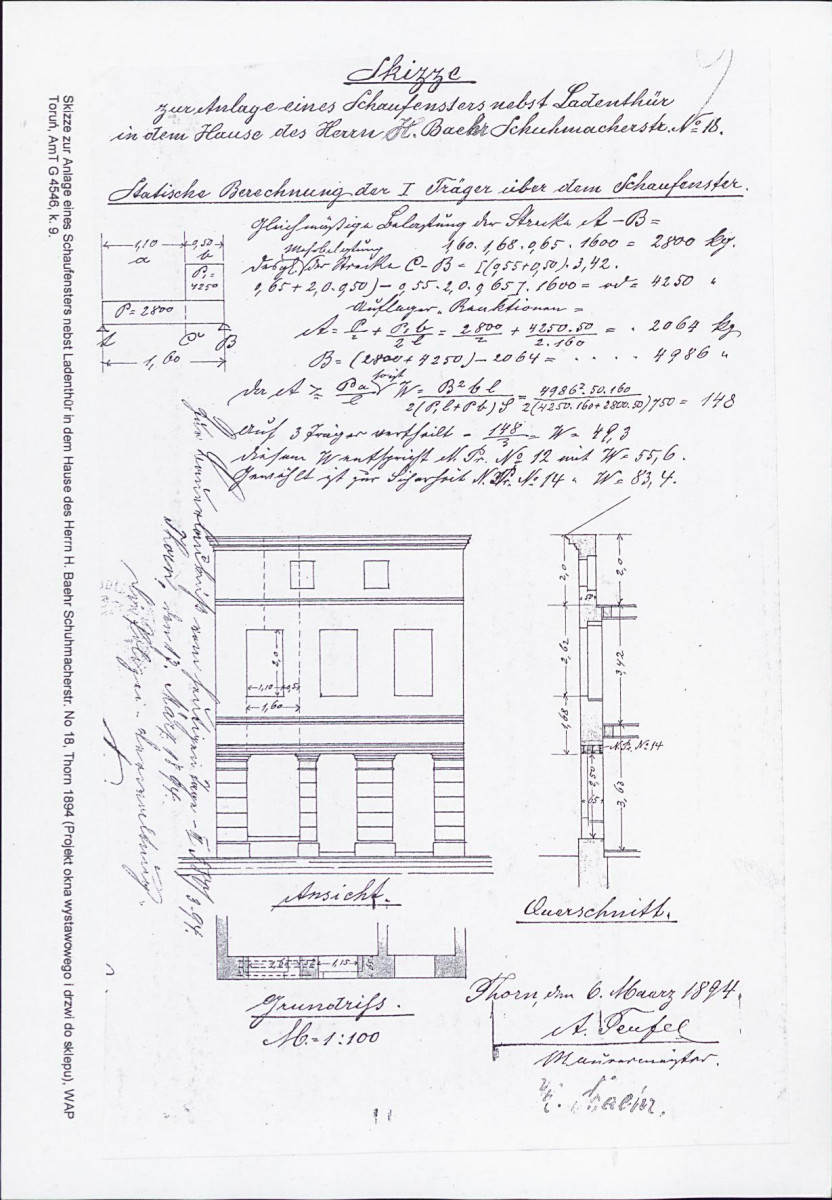 Skizze
zur Anlage eines Schaufensters nebst Ladenthür
in dem Hause des Herrn H. Baehr Schuhmacherstr. No 18.
Statische Berechnung der I Träger über dem Schaufenster.
Gleichmäßige Belastung der Strecke A–B =
1,60. 1,68. 0,65. 1600 = 2800 kg.
Mehrbelastung
desgl. der Strecke C–B = [(0,55+0,50). 3,42.
0,65 + 2,0. 0,50) – 0,55. 2,0. 0,65]. 1600 = rd = 4250 "
Auflager-Reaktionen =
A = P/2 + P₁ b/2 l = 2800/2 + 4250. 50/2. 160 = . 2064 kg
B = (2800 + 4250) – 2064 = . . . . 4986 "
da A > P a/l folgt W = B² b l/2(P₁ l + P b) S = 4986². 50. 160/2(4250. 160 + 2800. 50) 750 = 148
Auf 3 Träger vertheilt = 148/3 = W = 49,3
diesem W entspricht N. Pr. No 12 mit W = 55,6.
Gewählt ist zur Sicherheit N. Pr. No 14 " W = 83,4.
1,10 0,50
a b
P₁ =
4250
P = 2800
A C B
1,60
Thorn, den 13. März 1894.
Die Polizei-Verwaltung.
2,0
1,10 0,5
1,60
Ansicht.
2,0 2,0
2,62
1,68
N. Pr. No 14
Querschnitt.
1,15
Grundriss.
M. = 1:100
Thorn, den 6. Maerz 1894.
A. Teufel
Maurermeister.
H. Baehr.
Skizze zur Anlage eines Schaufensters nebst Ladenthür in dem Hause des Herrn H. Baehr Schuhmacherstr. No 18, Thorn 1894 (Projekt okna wystawowego i drzwi do sklepu), WAP
Toruń, AmT G 4546, k. 9.